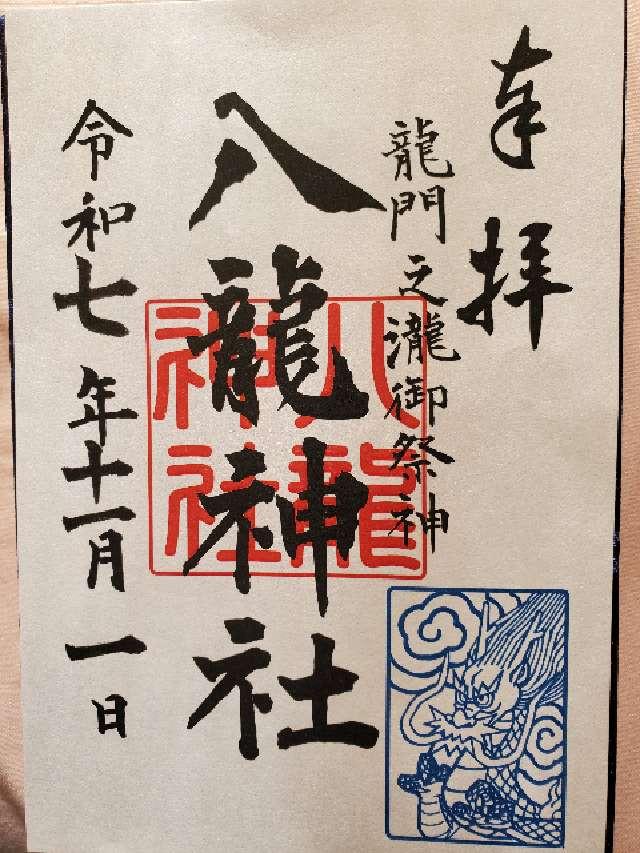 奉拝
龍門之瀧御祭神
八龍神社
八龍神社
令和七年十一月一日